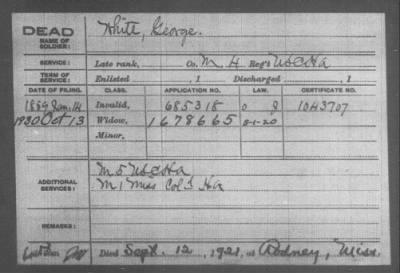 DEAD
NAME OF SOLDIER: White, George.
SERVICE: Late rank, Co. M, 4 Reg't US C Ha
TERM OF SERVICE: Enlisted , 1 Discharged , 1
DATE OF FILING. CLASS. APPLICATION NO. LAW. CERTIFICATE NO.
1889 Jan. 14 Invalid, 685318 1043707
1920 Oct 13 Widow, 1678665 5-1-20
Minor,
ADDITIONAL SERVICES: M 5 US C Ha
M, 1 Miss Col'd Ha
REMARKS:
Died Sept. 12, 1921, at Rodney, Miss.